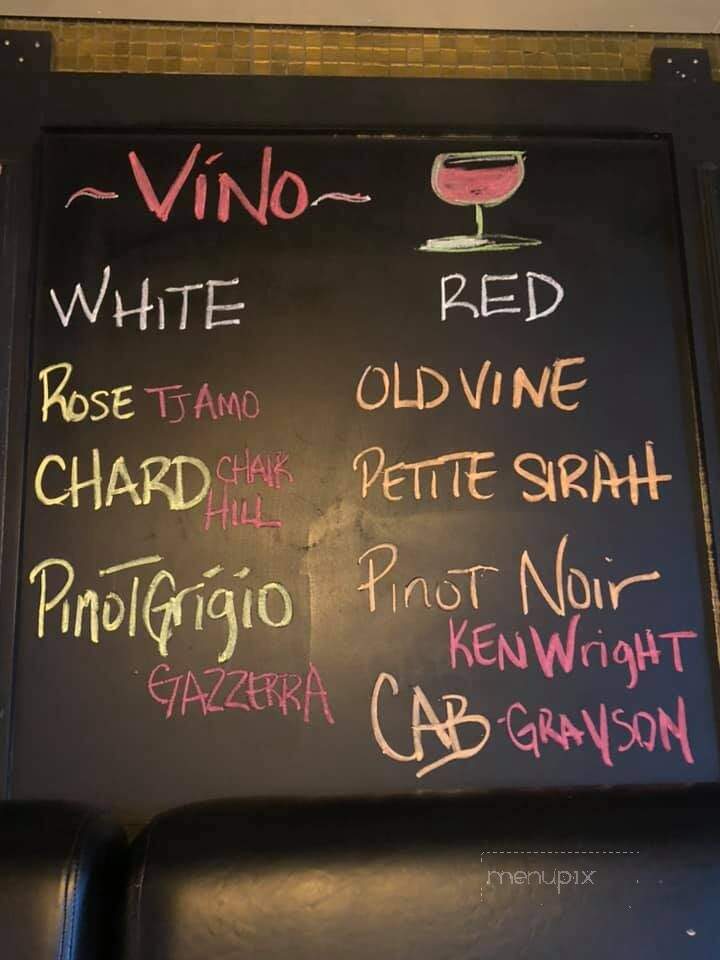 ~VíNO~
WHITE
ROSE TJAMO
CHARD CHALK
HILL
Pinot Grigio
GAZZERRA
RED
OLD VINE
PETITE SIRAH
Pinot Noir
KEN WrigHT
CAB-GRAYSON
menupix